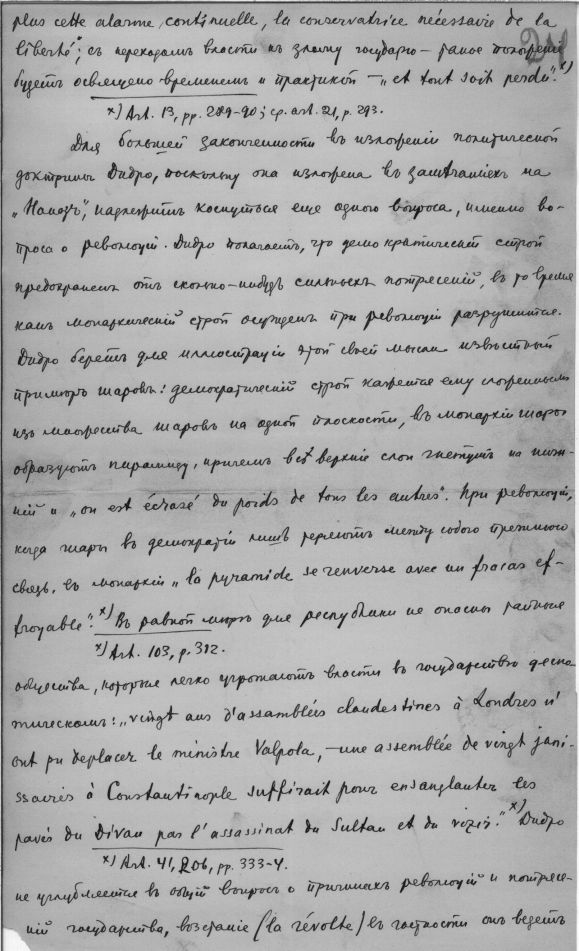 plus cette alarme continuelle, la conservatrice nécessaire de la
liberté"; съ переходомъ власти къ злому государю — такое положеніе
будетъ освящено временемъ и практикой — „et tout soit perdu".х)
х) Art. 13, pp. 289-90; ср. art. 21, p. 293.
Для большей законченности въ изложеніи политической
доктрины Дидро, поскольку она изложена въ замѣчаніяхъ на
„Наказъ", надлежитъ коснуться еще одного вопроса, именно во-
проса о революціи. Дидро полагаетъ, что демократическій строй
предохраненъ отъ сколько-нибудь сильныхъ потрясеній, въ то время
какъ монархическій строй осужденъ при революціи разрушиться.
Дидро беретъ для иллюстраціи этой своей мысли извѣстный
примѣръ шаровъ: демократическій строй кажется ему сложеннымъ
изъ множества шаровъ на одной плоскости, въ монархіи шары
образуютъ пирамиду, причемъ всѣ верхніе слои гнетутъ на ниж-
ній и „on est écrasé du poids de tous les autres". При революціи,
когда шары въ демократіи лишь теряютъ между собою прежнюю
связь, въ монархіи „la pyramide se renverse avec un fracas ef-
froyable".х) Въ равной мѣрѣ для республики не опасны тайныя
х) Art. 103, p. 312.
общества, которые легко угрожаютъ власти въ государствѣ деспо-
тическомъ: „vingt ans d'assemblées clandestines à Londres n'
ont pu deplacer le ministre Valpola, — une assemblée de vingt jani-
ssaires à Constantinople suffirait pour ensanglanter les
pavés du Divan par l'assassinat du Sultan et du vizir."х) Дидро
х) Art. 41, 206, pp. 333-4.
не углубляется въ общій вопросъ о причинахъ революцій и потрясе-
ній государства, возстаніе (la révolte) въ частности онъ ведетъ